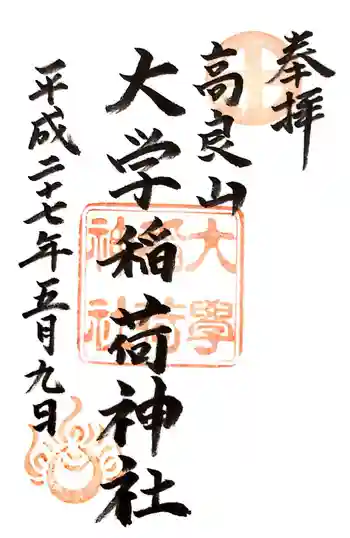 奉拝
高良山
大学稲荷神社
平成二十七年五月九日
大學
稲荷
神社